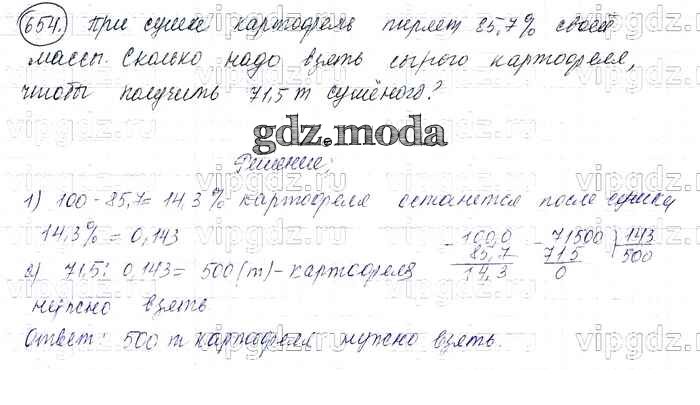 654. При сушке картофель теряет 85,7% своей
массы. Сколько надо взять сырого картофеля,
чтобы получить 71,5 т сушёного?
gdz.moda
Решение:
1) 100 - 85,7 = 14,3% картофеля останется после сушки
14,3% = 0,143
100,0
- 85,7
14,3
71500 | 143
- 715 | 500
0
2) 71,5 : 0,143 = 500 (т) - картофеля
нужно взять
Ответ: 500 т картофеля нужно взять.
vipgdz.ru